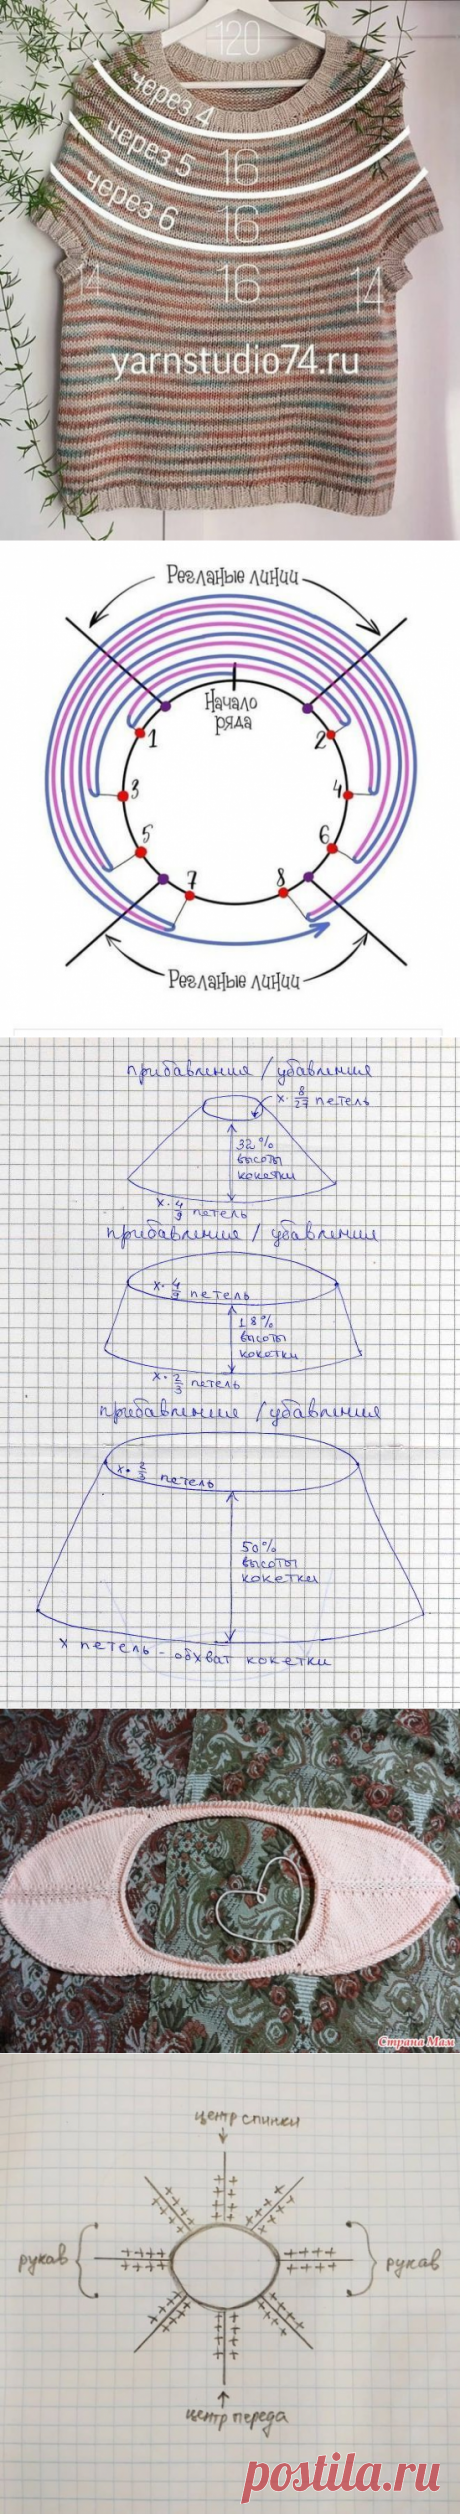 120
через 4
через 5
16
через 6
16
14
16
14
yarnstudio74.ru
Регланые линии
Начало
ряда
1
2
3
4
5
6
7
8
Регланые линии
прибавления / убавления
x · 8/27 петель
32%
высоты
кокетки
x · 4/9 петель
прибавления / убавления
x · 4/9 петель
18%
высоты
кокетки
x · 2/3 петель
прибавления / убавления
x · 2/3 петель
50%
высоты
кокетки
x петель - обхват кокетки
Страна Мам
центр спинки
рукав
рукав
центр переда
postila.ru